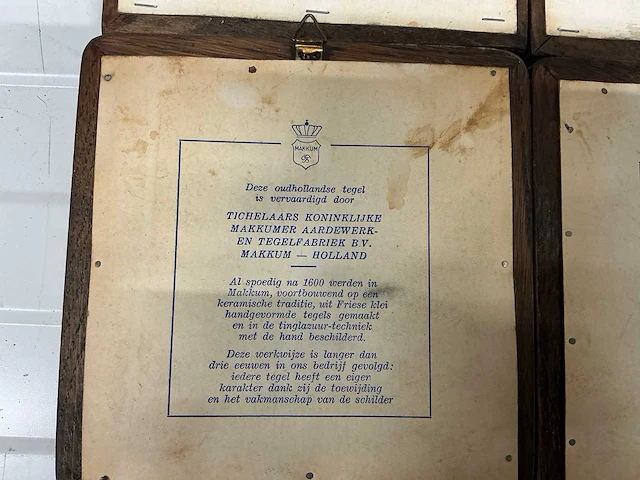 MAKKUM
Deze oudhollandse tegel
is vervaardigd door
TICHELAARS KONINKLIJKE
MAKKUMER AARDEWERK-
EN TEGELFABRIEK B.V.
MAKKUM — HOLLAND
Al spoedig na 1600 werden in
Makkum, voortbouwend op een
keramische traditie, uit Friese klei
handgevormde tegels gemaakt
en in de tinglazuur-techniek
met de hand beschilderd.
Deze werkwijze is langer dan
drie eeuwen in ons bedrijf gevolgd:
iedere tegel heeft een eigen
karakter dank zij de toewijding
en het vakmanschap van de schilder